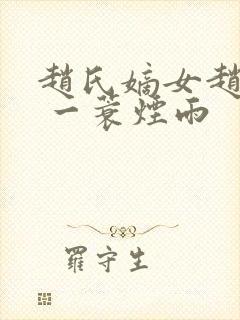 趙氏嫡女趙
一蓑煙雨
羅守生